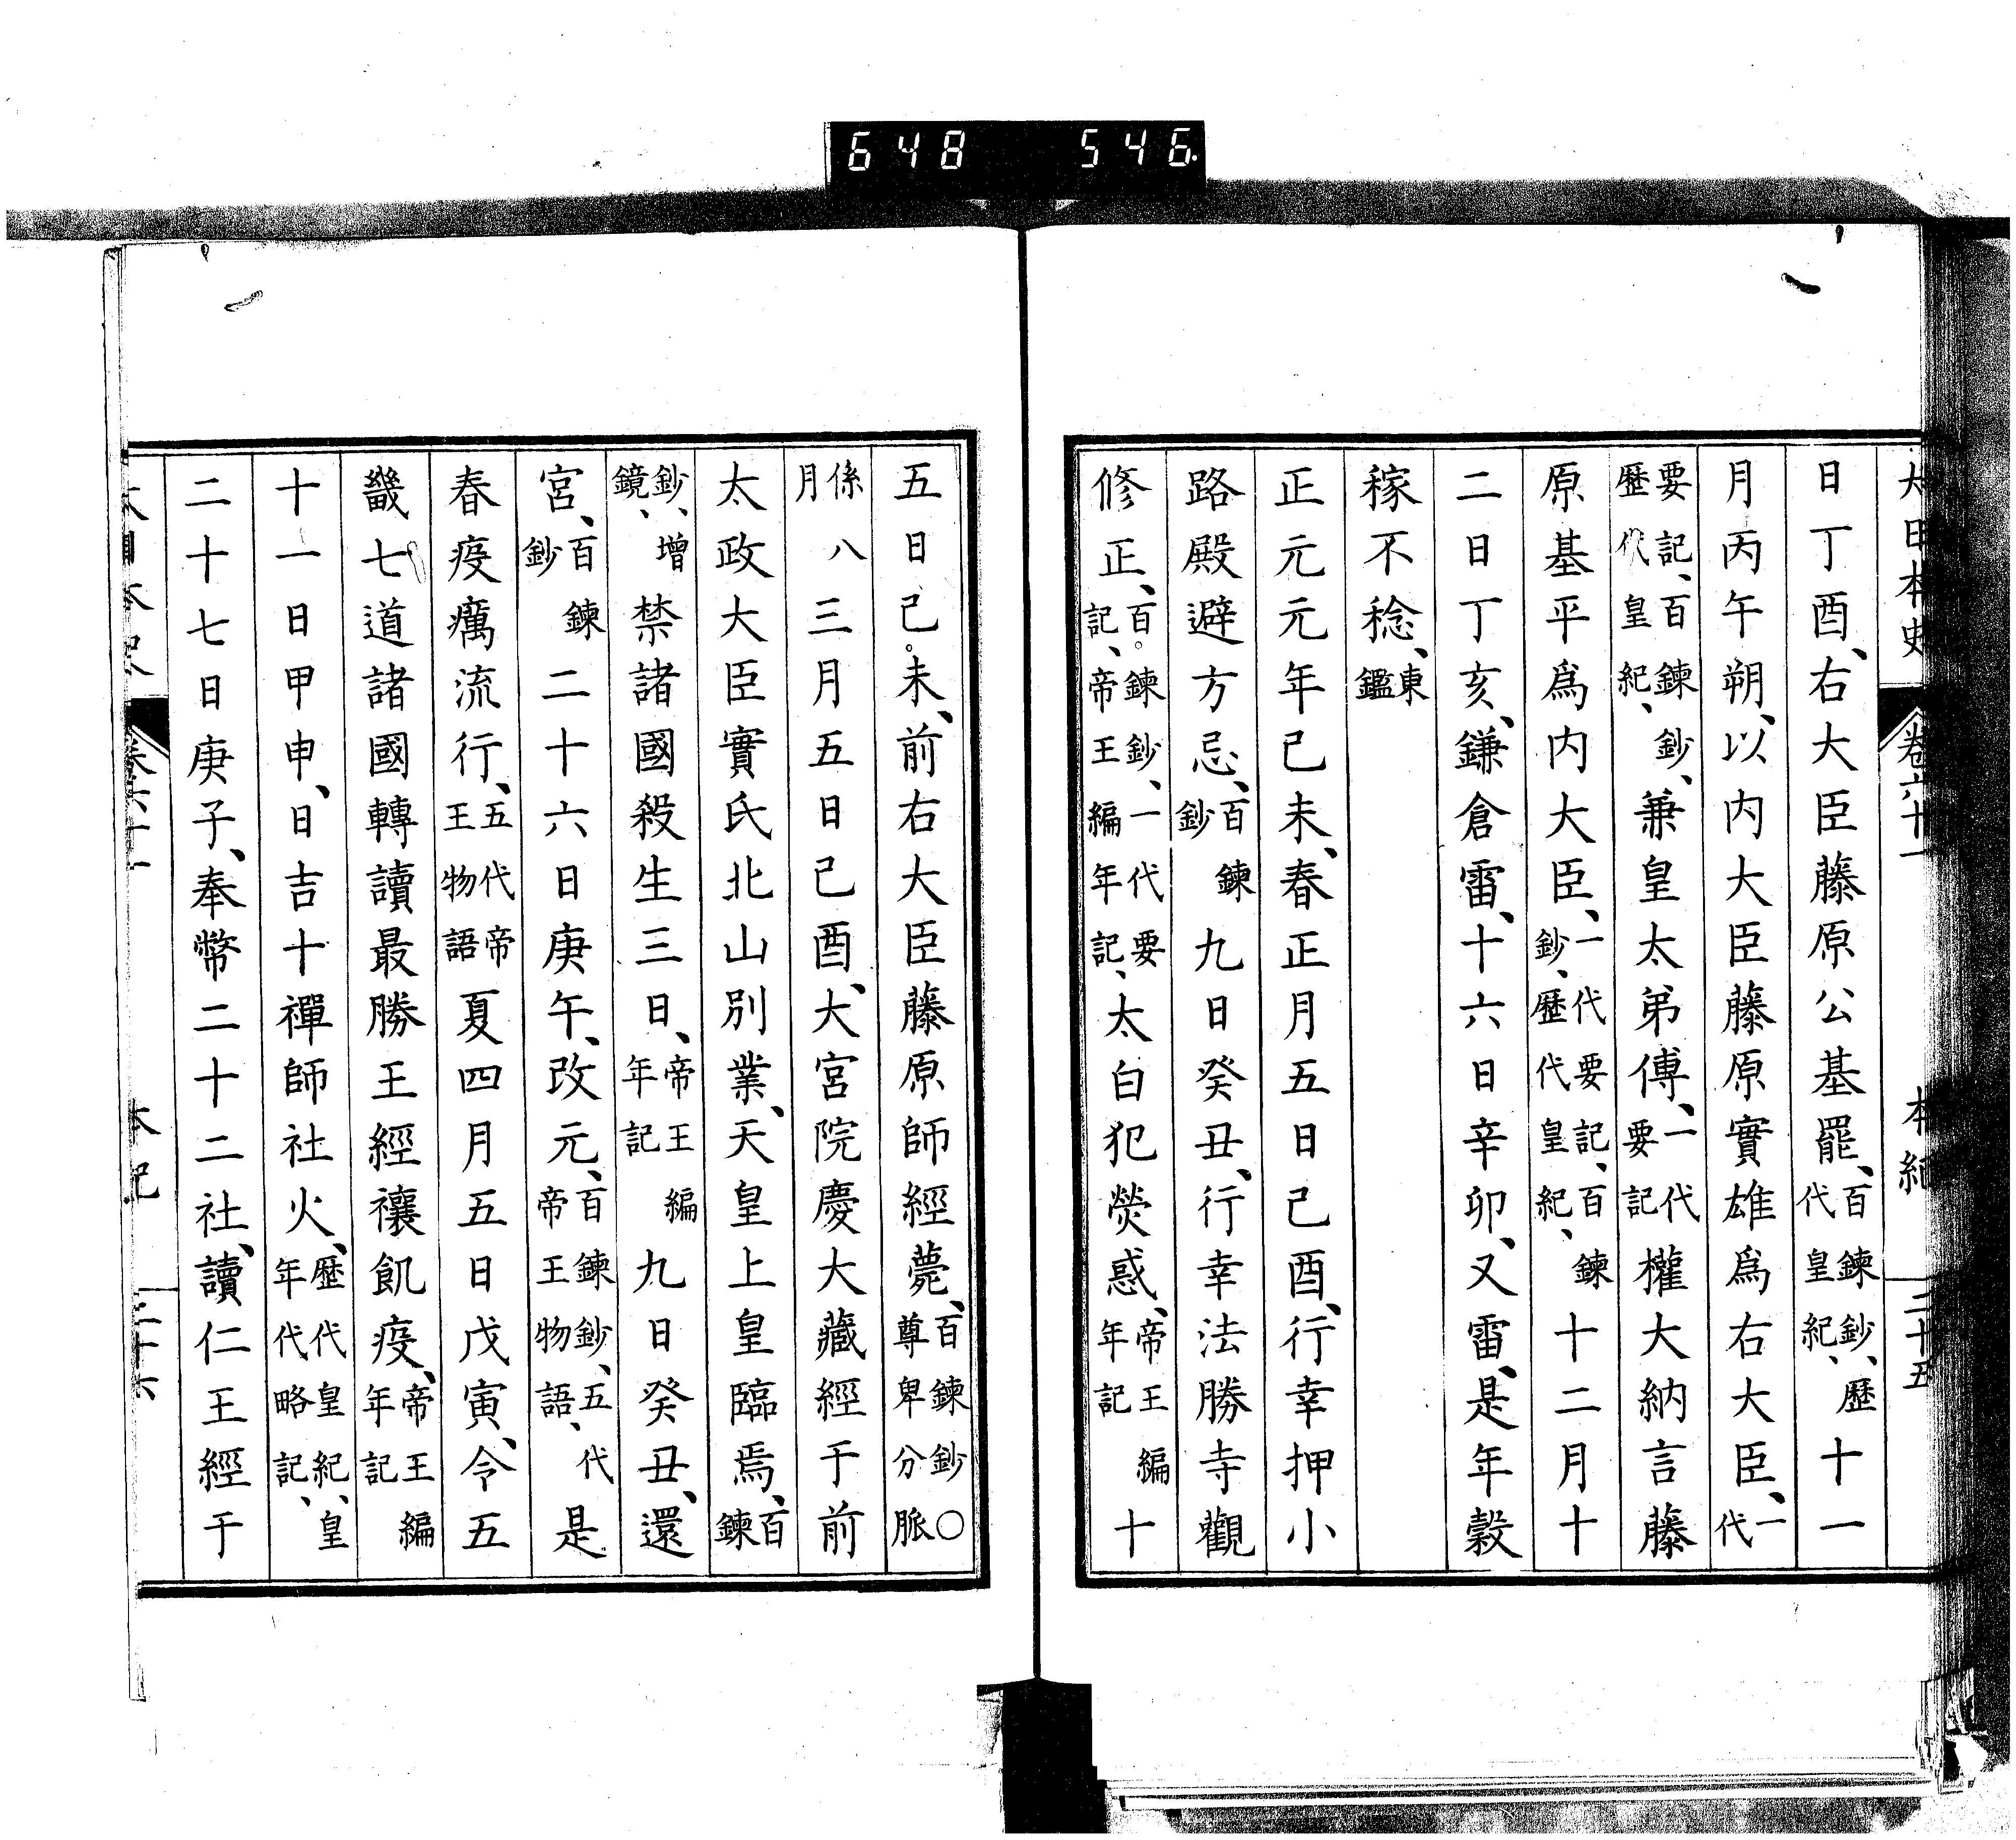 大日本史 卷六十一 本紀 二十五
日丁酉、右大臣藤原公基罷、百鍊鈔、歷代皇紀、十一
月丙午朔、以内大臣藤原實雄爲右大臣、一代
要記、百鍊鈔、歷代皇紀、兼皇太弟傅、一代要記權大納言藤
原基平爲内大臣、一代要記、百鍊鈔、歷代皇紀、十二月十
二日丁亥、鎌倉雷、十六日辛卯、又雷、是年穀
稼不稔、東鑑
正元元年己未、春正月五日己酉、行幸押小
路殿避方忌、百鍊鈔九日癸丑、行幸法勝寺觀
修正、百鍊鈔、一代要記、帝王編年記、太白犯熒惑、帝王編年記十
五日己未、前右大臣藤原師經薨、百鍊鈔〇尊卑分脈
係八月三月五日己酉、大宮院慶大藏經于前
太政大臣實氏北山別業、天皇上皇臨焉、百鍊
鈔、增鏡、禁諸國殺生三日、帝王編年記九日癸丑、還
宮、百鍊鈔二十六日庚午、改元、百鍊鈔、五代帝王物語、是
春疫癘流行、五代帝王物語夏四月五日戊寅、令五
畿七道諸國轉讀最勝王經禳飢疫、帝王編年記
十一日甲申、日吉十禪師社火、歷代皇紀、皇年代略記、
二十七日庚子、奉幣二十二社、讀仁王經于
大日本史 卷六十一 本紀 二十六
648 546